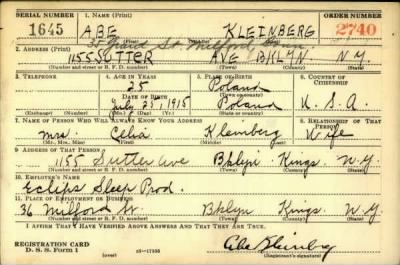 SERIAL NUMBER 1. NAME (Print) ORDER NUMBER
1645 ABE KLEINBERG 2740
St. Milford Conn.
2. ADDRESS (Print)
1155 SUTTER AVE BKLYN N.Y.
(Number and street or R. F. D. number) (Town) (County) (State)
3. TELEPHONE 4. AGE IN YEARS 5. PLACE OF BIRTH 6. COUNTRY OF CITIZENSHIP
25 Poland
DATE OF BIRTH (Town or county)
July 25, 1915 Poland U.S.A.
(Exchange) (Number) (Mo.) (Day) (Yr.) (State or country)
7. NAME OF PERSON WHO WILL ALWAYS KNOW YOUR ADDRESS 8. RELATIONSHIP OF THAT PERSON
Mrs. Celia Kleinberg Wife
(Mr., Mrs., Miss) (First) (Middle) (Last)
9. ADDRESS OF THAT PERSON
1155 Sutter Ave Bklyn Kings N.Y.
(Number and street or R. F. D. number) (Town) (County) (State)
10. EMPLOYER'S NAME
Eclips Sleep Prod.
11. PLACE OF EMPLOYMENT OR BUSINESS
36 Milford St. Bklyn Kings N.Y.
(Number and street or R. F. D. number) (Town) (County) (State)
I AFFIRM THAT I HAVE VERIFIED ABOVE ANSWERS AND THAT THEY ARE TRUE.
REGISTRATION CARD
D. S. S. Form 1 (over) 16—17105 Abe Kleinberg
(Registrant's signature)